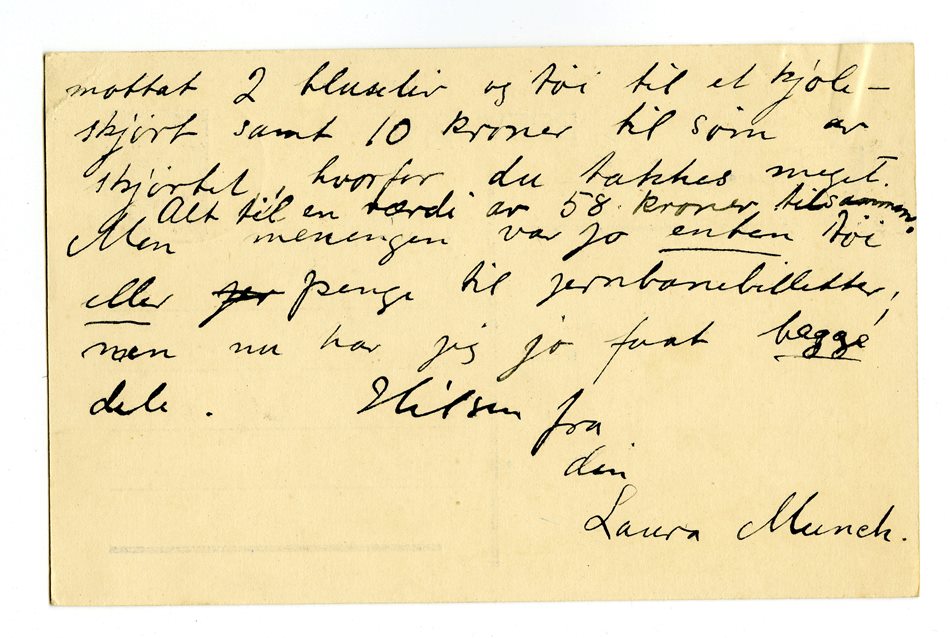 mottat 2 bluseliv og tøi til et kjole-
skjørt samt 10 kroner til søm av
skjørtet, hvorfor du takkes meget.
Alt til en værdi av 58 kroner tilsammen.
Men meningen var jo enten tøi
eller jer penge til jernbanebilletter,
men nu har jeg jo faat begge
dele. Hilsen fra
din
Laura Munch.